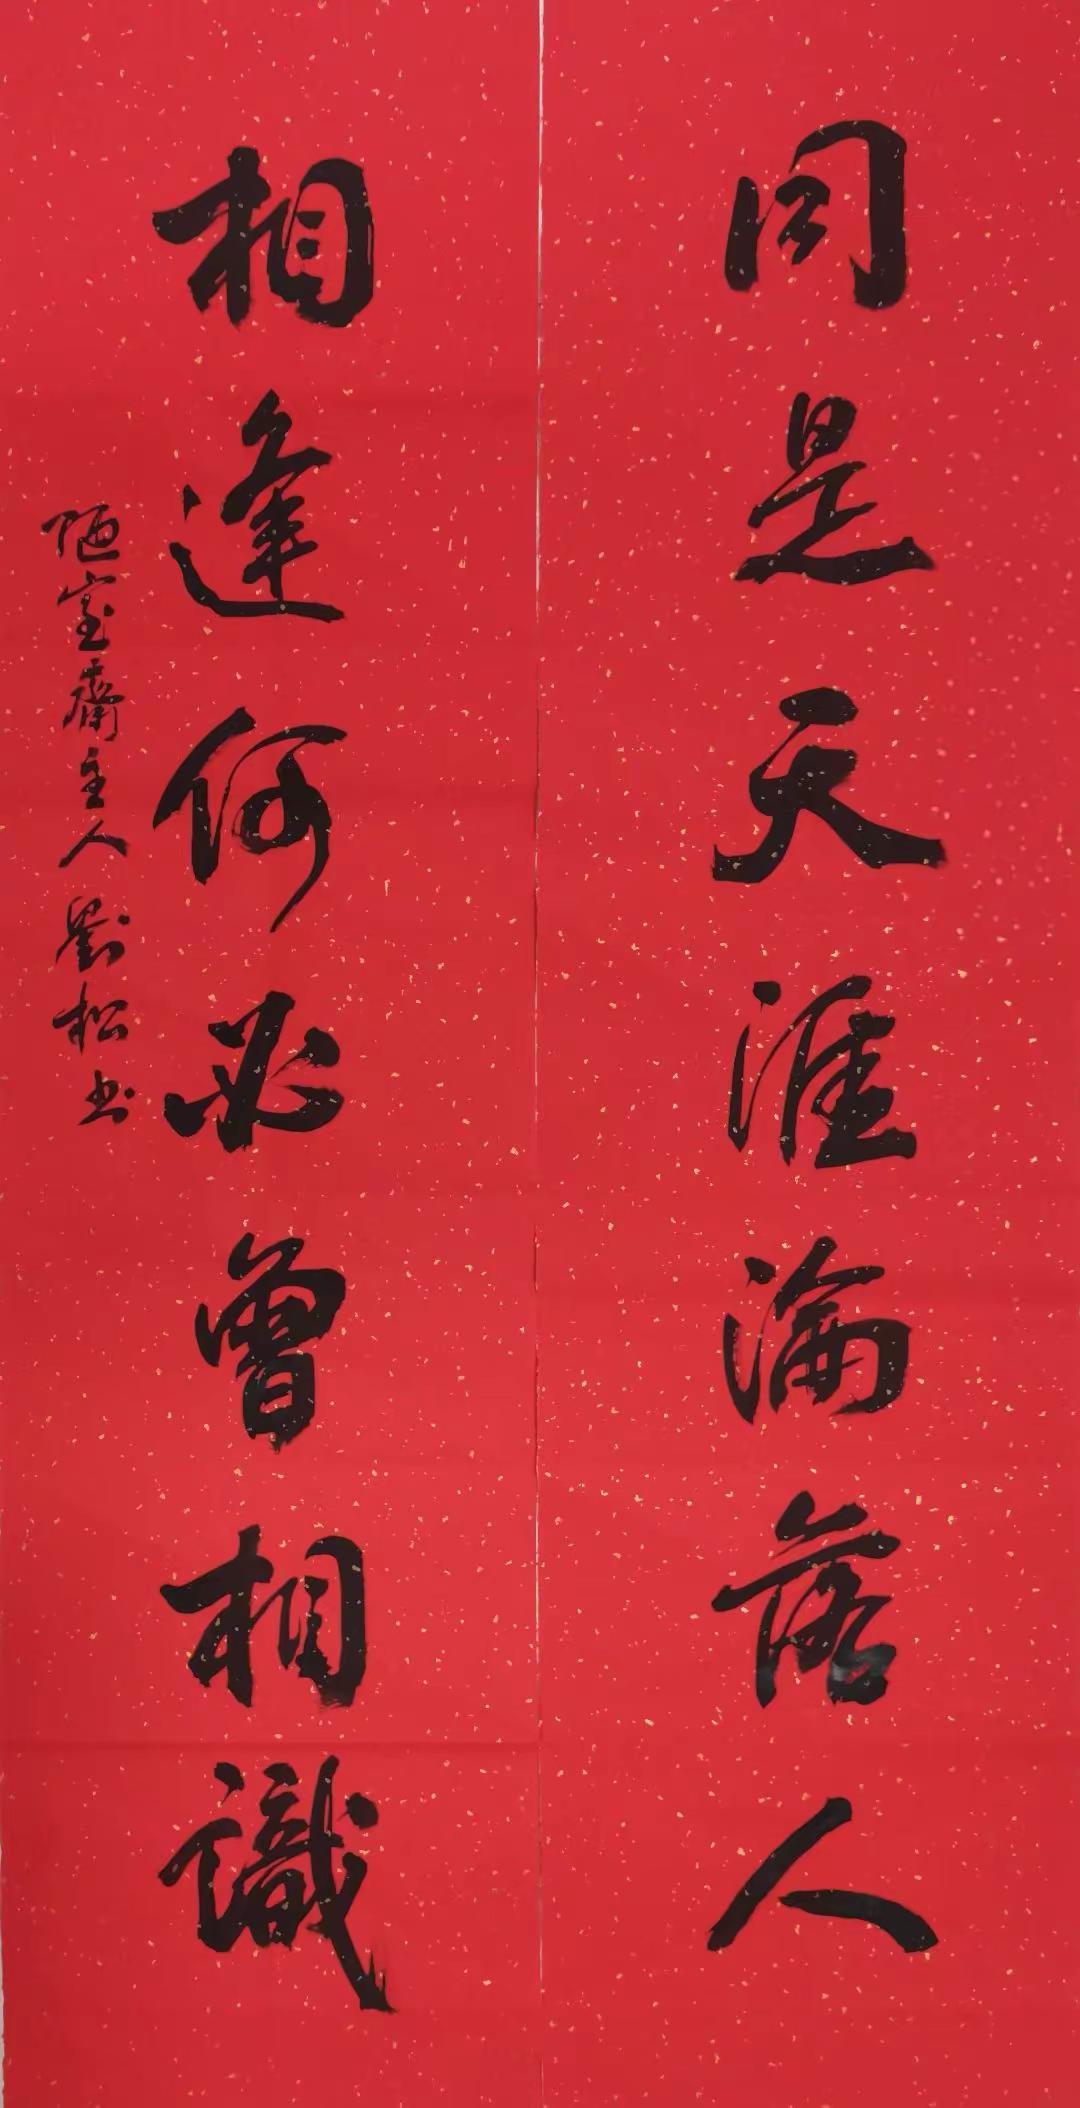 同是天涯淪落人
相逢何必曾相識
陋室齋主人劉松书